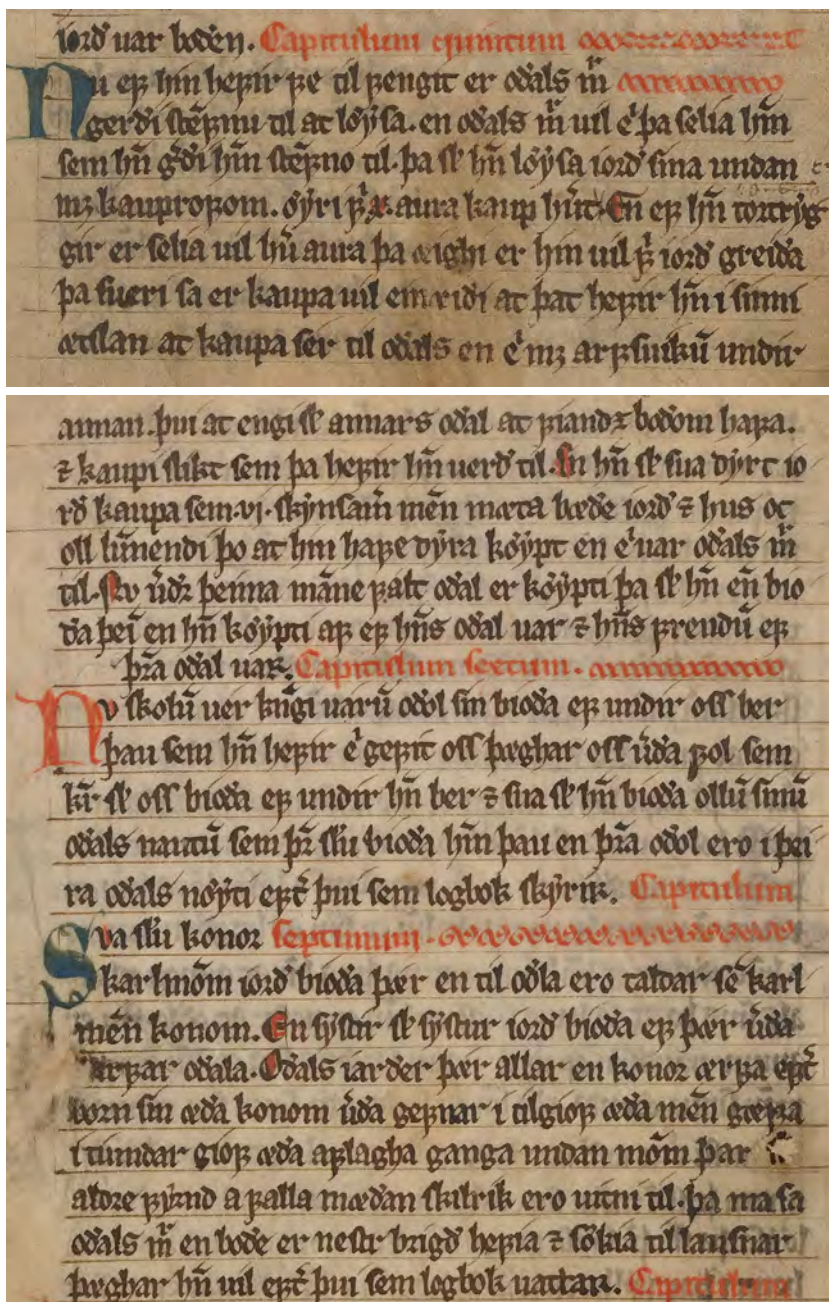 iorð uar boðen. Capitulum quintum
Nu ef hin hefir fe til fengit er oðals m̄
gerði stefnu til at lỏysa. en oðals m̄ uil ei þa selia hm̄
sem hn̄ gði hm̄ stefno til. þa sk hn̄ lỏysa iorð sina undan
mz kauprofom. ỏyri f͛ .x. aura kaup huert. En ef hn̄ tortryg
gir er selia uil hn̄ aura þa æighi er hin uil f͛ iorð greiða
þa sueri sa er kaupa uil einæiði at þat hefir hn̄ i sinni
ætlan at kaupa ser til oðals en ei mz arfsuikū undir
annan. þui at engi sk annars oðal at fiandꝛ boðom hafa.
⁊ kaupi slikt sem þa hefir hn̄ uerð til. En hn̄ sk sua dyrt io
rð kaupa sem .vi. skynsam̄ men̄ mæta bæde iorð ⁊ hus oc
oll lun̄endi þo at hin hafe dyra kỏypt en ei uar oðals m̄
til. Nv uðꝛ þenna man̄e falt oðal er kỏypti þa sk hn̄ en̄ bio
ða þei en hn̄ kỏypti af ef hn̄s oðal uar ⁊ hn̄s frendū ef
þra oðal uar. Capitulum sextum.
Nv skolū uer kn̄gi uarū oðol sin bioða ef undir oss ber
þau sem hn̄ hefir ei gefit oss þæghar oss uða fol sem
kr̄ sk oss bioða ef undir hn̄ ber ⁊ sua sk hn̄ bioða ollū sinū
oðals nautū sem þr̄ sklu bioða hm̄ þau en þra oðol ero i þei
ra oðals nỏyti eft͛ þui sem logbok skyrir. Capitulum
Sva sklu konor septimum.
karlmōm iorð bioða þær en til oðla ero taldar sē karl
men̄ konom. En systir sk systur iorð bioða ef þær uða
arfar oðala. Oðals iarder þær allar en konoꝛ ærfa eft͛
born sin æða konom uða gefnar i tilgiof æða men̄ gæfa
i tiundar giof æða aflagha ganga undan mōm þar
aldre fyrnd a falla mæðan skilrik ero uitni til. þa ma sa
oðals m̄ en boðe er nestr brigð hefia ⁊ sỏkia til lausnar
þæghar hn̄ uil eft͛ þui sem logbok uattar. Capitulum